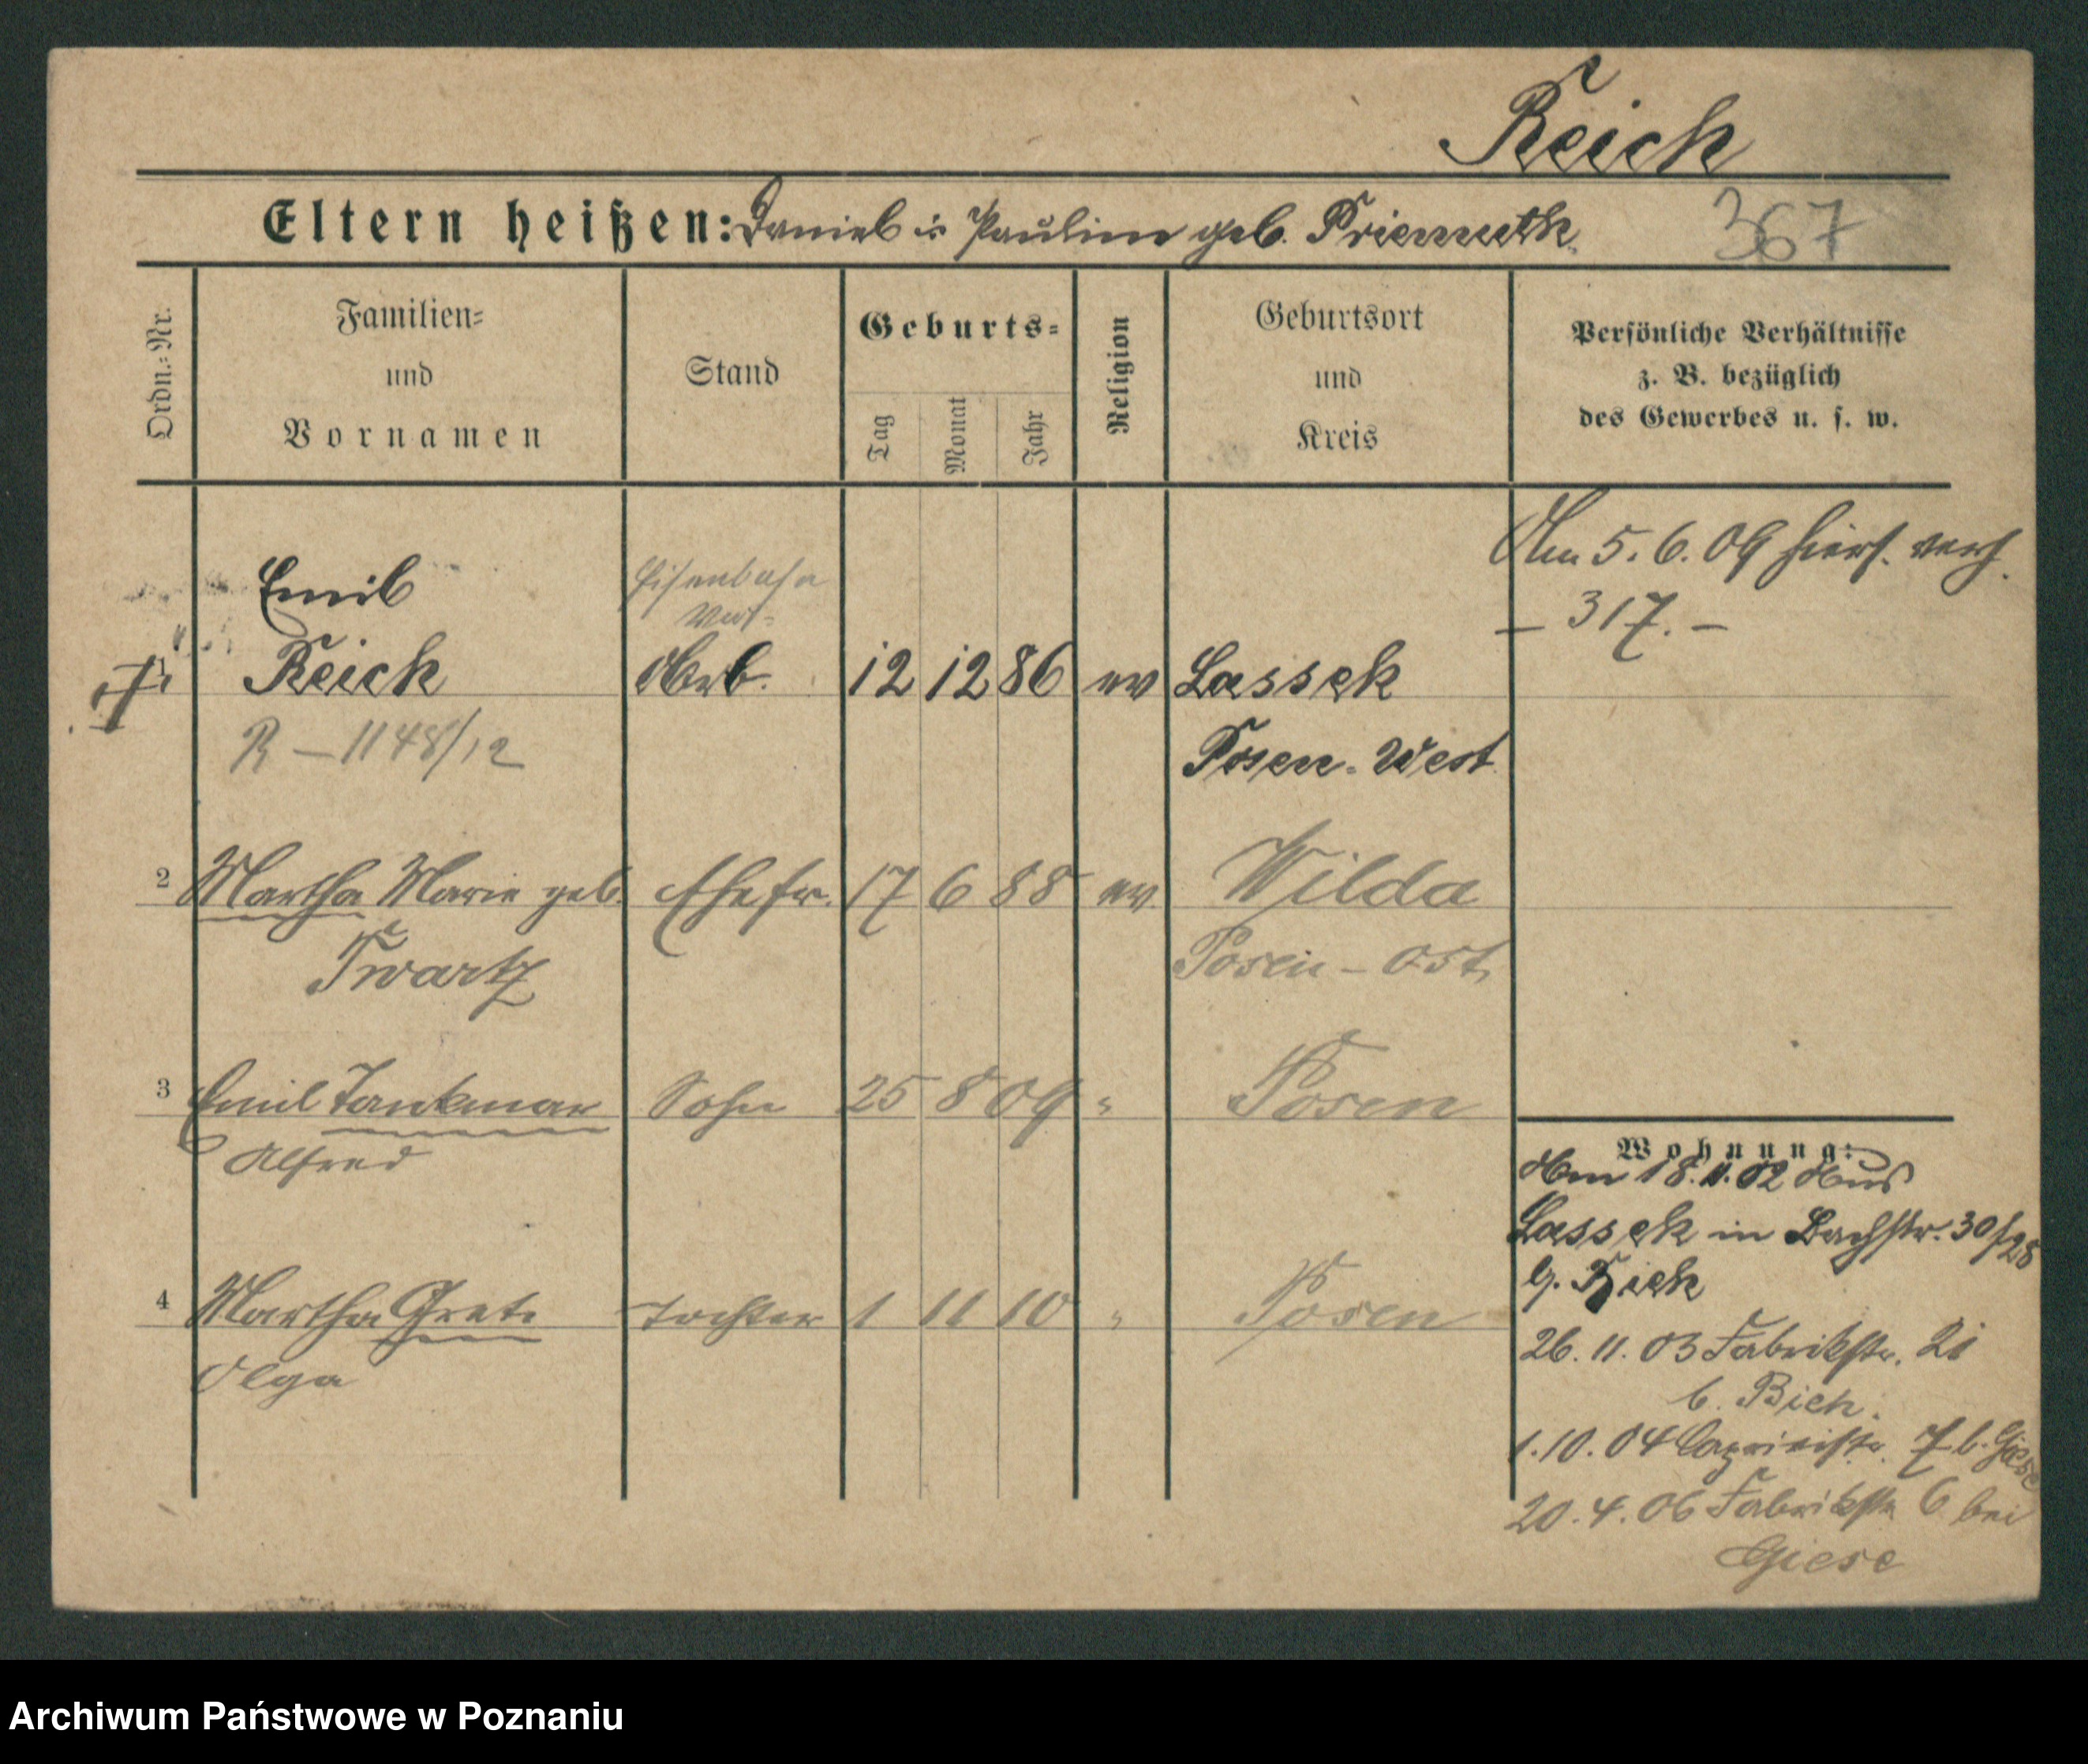 Reich
Eltern heißen: Daniel u. Pauline geb. Priemuth
367
Ordn.-Nr.
Familien-
und
Vornamen
Stand
Geburts-
Tag
Monat
Jahr
Religion
Geburtsort
und
Kreis
Persönliche Verhältnisse
z. B. bezüglich
des Gewerbes u. s. w.
Am 5.6.09 hiers. verh.
– 317. –
Emil
Eisenbahn
1 Reich Arb. 12 12 86 ev Lassek
R – 1148/12
Posen-West
2 Martha Marie geb. Ehefr. 17 6 88 ev. Wilda
Twartz
Posen-Ost
3 Emil Tankmar Sohn 25 8 09 " Posen
Alfred
4 Martha Grete Tochter 1 11 10 " Posen
Olga
Wohnung:
Am 18.11.02 Aus
Lassek in Bachstr. 30/28
b.
26.11.03 Fabrikstr. 21
b.
1.10.04 Caprivistr. 7 b. Giese
20.4.06 Fabrikstr 6 bei
Giese
Archiwum Państwowe w Poznaniu